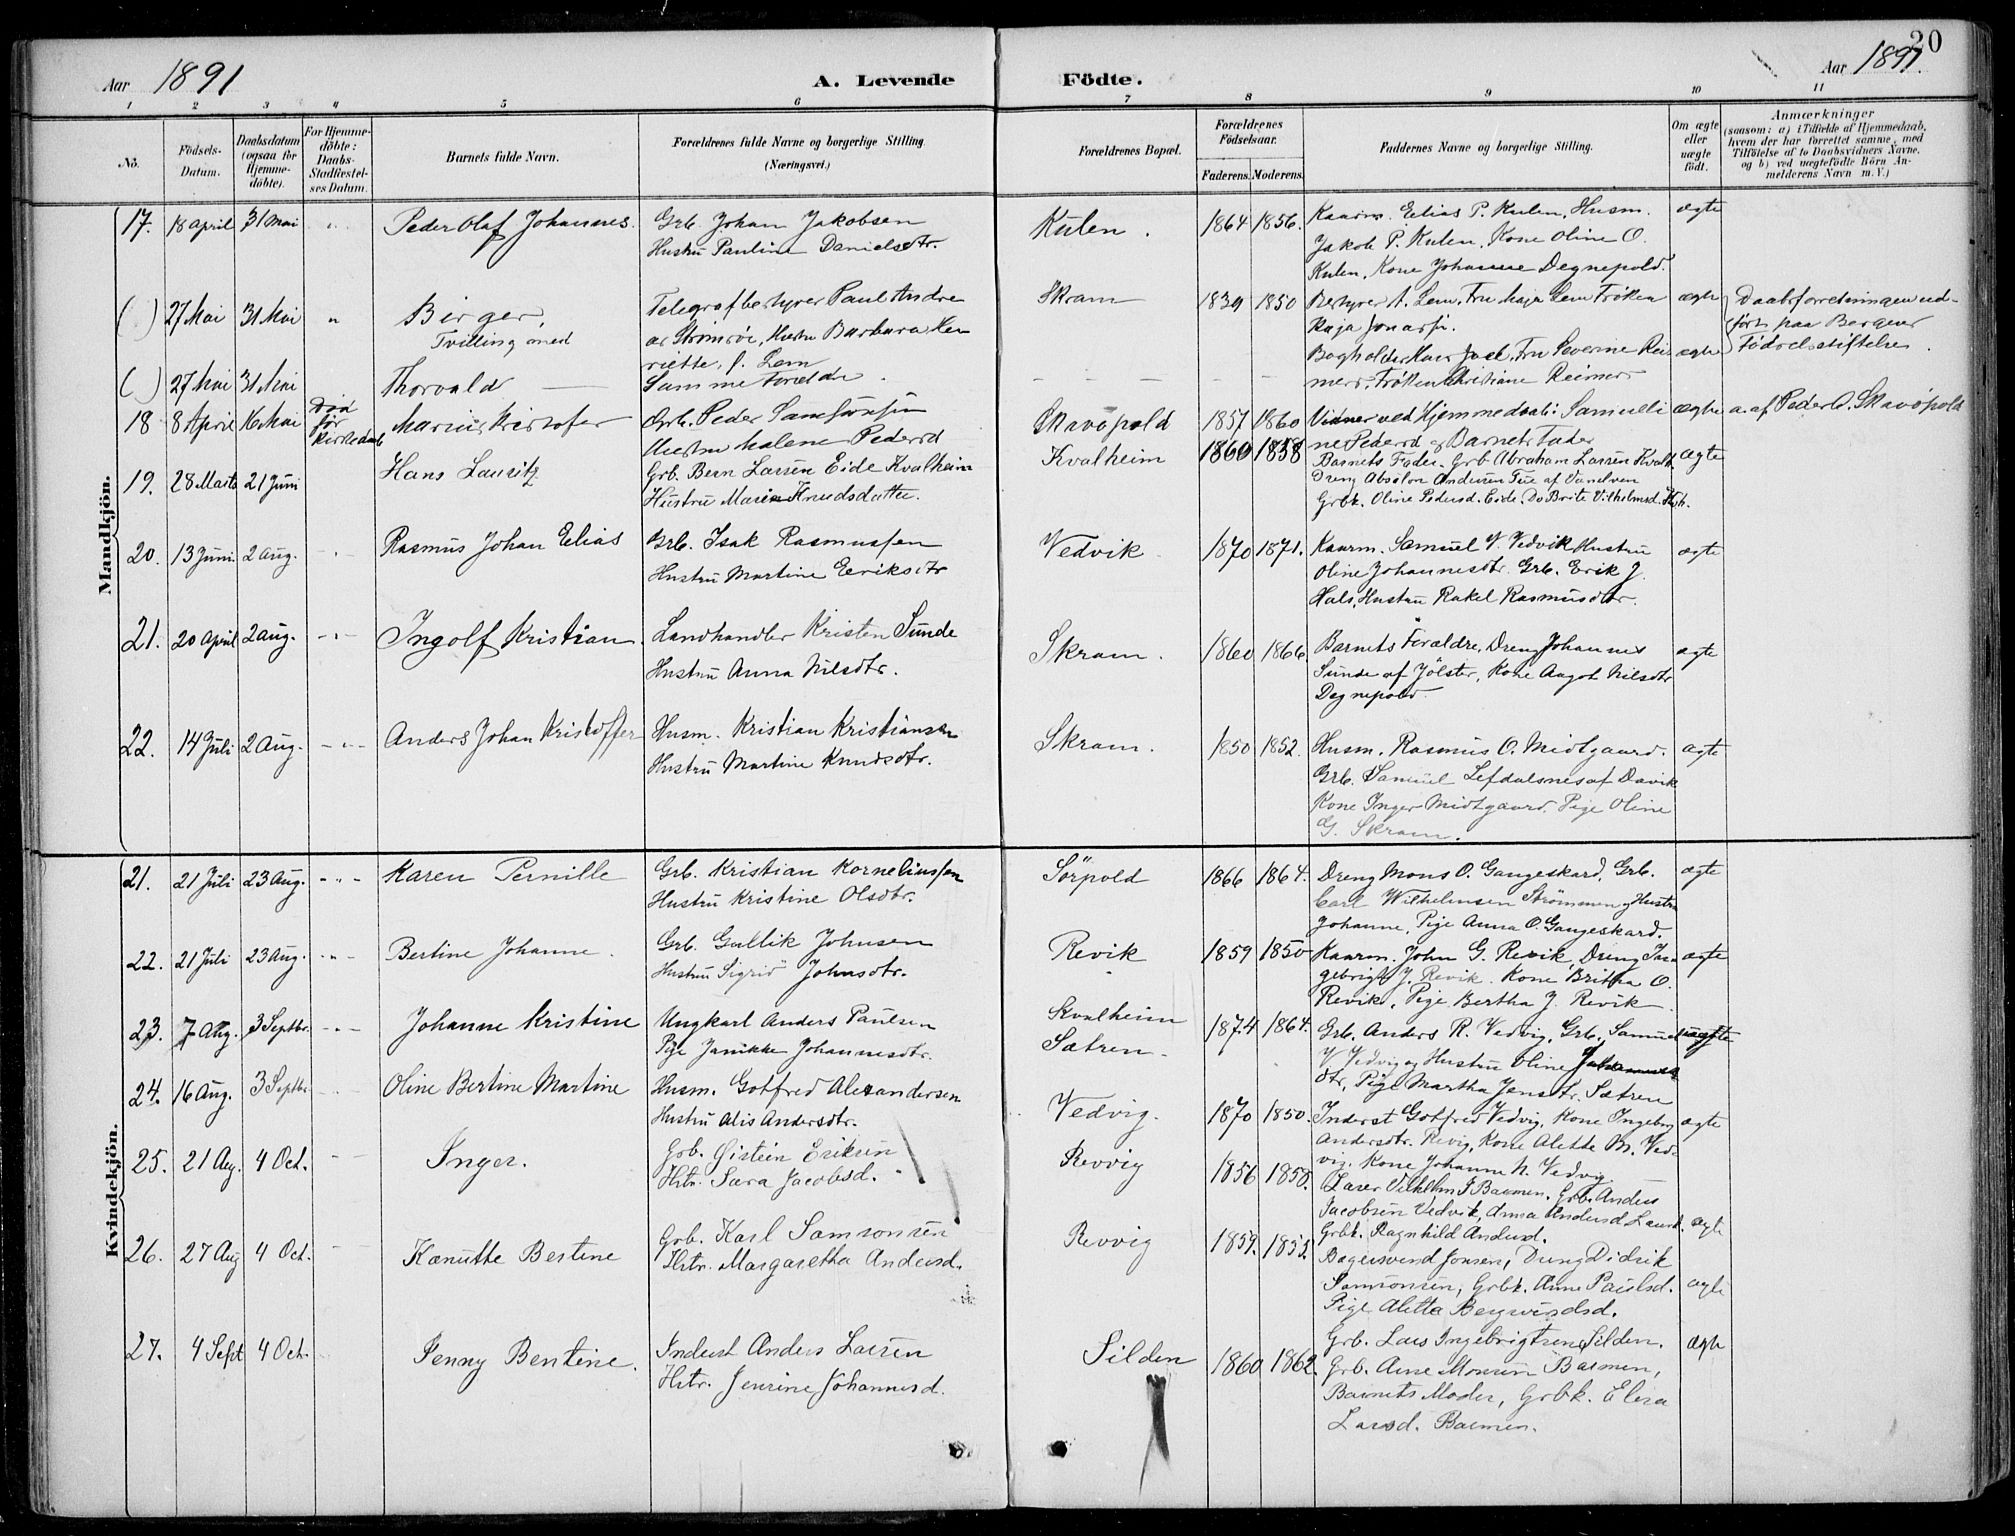 20
Aar 1891
A. Levende
Födte.
Aar 1891.
1 2 3 4 5 6 7 8 9 10 11
No.
Födsels-
Datum.
Daabsdatum
(ogsaa for
Hjemme-
döbte).
For Hjemme-
döbte:
Daabs-
Stadfæstel-
ses Datum.
Barnets fulde Navn.
Forældrenes fulde Navne og borgerlige Stilling
(Næringsvei.)
Forældrenes Bopæl.
Forældrenes
Födselsaar.
Faderens. Moderens.
Faddernes Navne og borgerlige Stilling.
Om ægte
eller
uægte
födt.
Anmærkninger
(saasom: a) i Tilfælde af Hjemmedaab,
hvem der har forrettet samme, med
Tilföielse af to Daabsvidners Navne,
og b) ved uægtefödte Börn An-
melderens Navn m. V.)
Mandkjön.
17. 18 April 31 Mai " Peder Olaf Johannes.
Grb. Johan Jakobsen
Hustru Pauline Danielsdtr.
Kulen. 1864 1856.
Kaarm. Elias P. Kulen, Husm.
Jakob P. Kulen, Kone Oline O.
Kulen, Kone Johanne Degnepold.
ægte
( ) 27 Mai 31 Mai " Birger,
Tvilling med
Telegrafbestyrer Paul Andre
as Strömröe, Hustru Barbara Hen
riette, f. Lem
Skram 1839 1850
Bestyrer A. Lem, Fru Maja Lem Fröken
Kaja
ægte
Daabsforretningen ud-
ført paa Bergens
Fødselsstiftelse.
( ) 27 Mai 31 Mai Thorvald
Samme Forældre.
Bogholder Fru Severine Rei
mers, Fröken Christiane Reimers
ægte
18 8 April 16 Mai
Död
för
Kirkedaab
Marius Kristofer
Grb. Peder Samsonsen
Hustru Malene Pedersd
Skavöpold 1857 1860
Vidner ved Hjemmedaab: Samueli
ne Pedersd og Barnets Fader
ægte
a. af Peder S. Skavöpold
19. 28 Marts 21 Juni Hans Lauritz
Grb. Bern Larsen Eide Kvalheim
Hustru Marie Knudsdatter.
Kvalheim 1860 1858
Barnets Fader. Grb Abraham Larsen Kvalh.
Dreng Absalon Andersen Tue af Vanelven
Grbk. Oline Pedersd. Eide. Do Brite Vilhelmsd. Kvh.
ægte
20. 13 Juni. 2 Aug. Rasmus Johan Elias
Grb. Isak Rasmussen
Hustru Martine Eeriksdtr
Vedvik 1870 1871.
Kaarm. Samuel V. Vedvik Hustru
Oline Johannesdtr. Grb. Erik J.
Hals, Hustru Rakel Rasmusdtr.
ægte
21. 20 April 2 Aug. Ingolf Kristian.
Landhandler Kristen Sunde
Hustru Anna Nilsdtr.
Skram. 1860 1866.
Barnets Forældre, Dreng Johannes
Sunde af Jölster, Kone Angot Nilsdtr
Degnepold.
ægte
22. 14 Juli 2 Aug. Anders Johan Kristoffer
Husm. Kristian Kristiansen
Hustru Martine Knudsdtr.
Skram. 1850 1852.
Husm. Rasmus O. Midtgaard.
Grb. Samuel Lefdalsnes af Davik
Kone Inger Midtgaard, Pige Oline
G. Skram.
ægte
Kvindekjön.
21. 21 Juli 23 Aug. Karen Pernille
Grb. Kristian Korneliussen
Hustru Kristine Olsdtr.
Sörpold 1866 1864.
Dreng Mons O. Gangeskard, Grb.
Carl Wilhelmsen Strömmen og Hustru
Johanne, Pige Anna O. Gangeskard.
ægte
22. 21 Juli 23 Aug. Bertine Johanne.
Grb. Gullik Johnsen
Hustru Sigrid Johnsdtr.
Revik 1859 1850
Kaarm. John G. Revik, Dreng In
gebrigt J. Revik. Kone Britha O.
Revik, Pige Bertha J. Revik
ægte
23. 7 Aug. 3 Septbr. Johanne Kristine
Ungkarl Anders Paulsen
Pige Janikke Johannesdtr.
Kvalheim
Sætren 1874 1864.
Grb. Anders R. Vedvig, Grb. Samuel
V. Vedvig og Hustru Oline Johannes
dtr, Pige Martha Jansdtr. Sætren
uægte
24. 16 Aug. 3 Septbr Oline Bertine Martine
Husm. Gotfred Alexandersen
Hustru Alis Andersdtr.
Vedvig. 1870 1850.
Inderst Gotfred Vedvig, Kone Ingeborg
Andersdtr. Revig, Kone Alette M. Ved-
vig. Kone Johanne N. Vedvig.
ægte
25. 21 Aug. 4 Oct. Inger.
Grb. Øistein Eriksen
Hstr. Sara Jacobsd.
Revvig 1856 1858.
Lærer Vilhelm J Barmen. Grb. Anders
Jacobsen Vedvik, Anna Andersd
Grbk. Ragnhild Andersd.
ægte
26. 27 Aug 4 Oct. Kanutte Bertine
Grb. Karl Samsonsen
Hstr. Margaretha Andersd.
Revvig 1859. 1852.
Bagersvend Jonsen, Dreng Didrik
Samsonsen, Grbk. Anne Paulsd.
Pige Alette Bergsvendsd.
ægte
27. 4 Sept 4 Oct. Jenny Bentine.
Inderst Anders Larsen
Hstr. Jensine Johannesd.
Silden 1860 1862.
Grb. Lars Ingebrigtsen Silden.
Grb. Arne Monsen Barmen,
Barnets Moder, Grbk. Elisa
Larsd. Barmen.
ægte